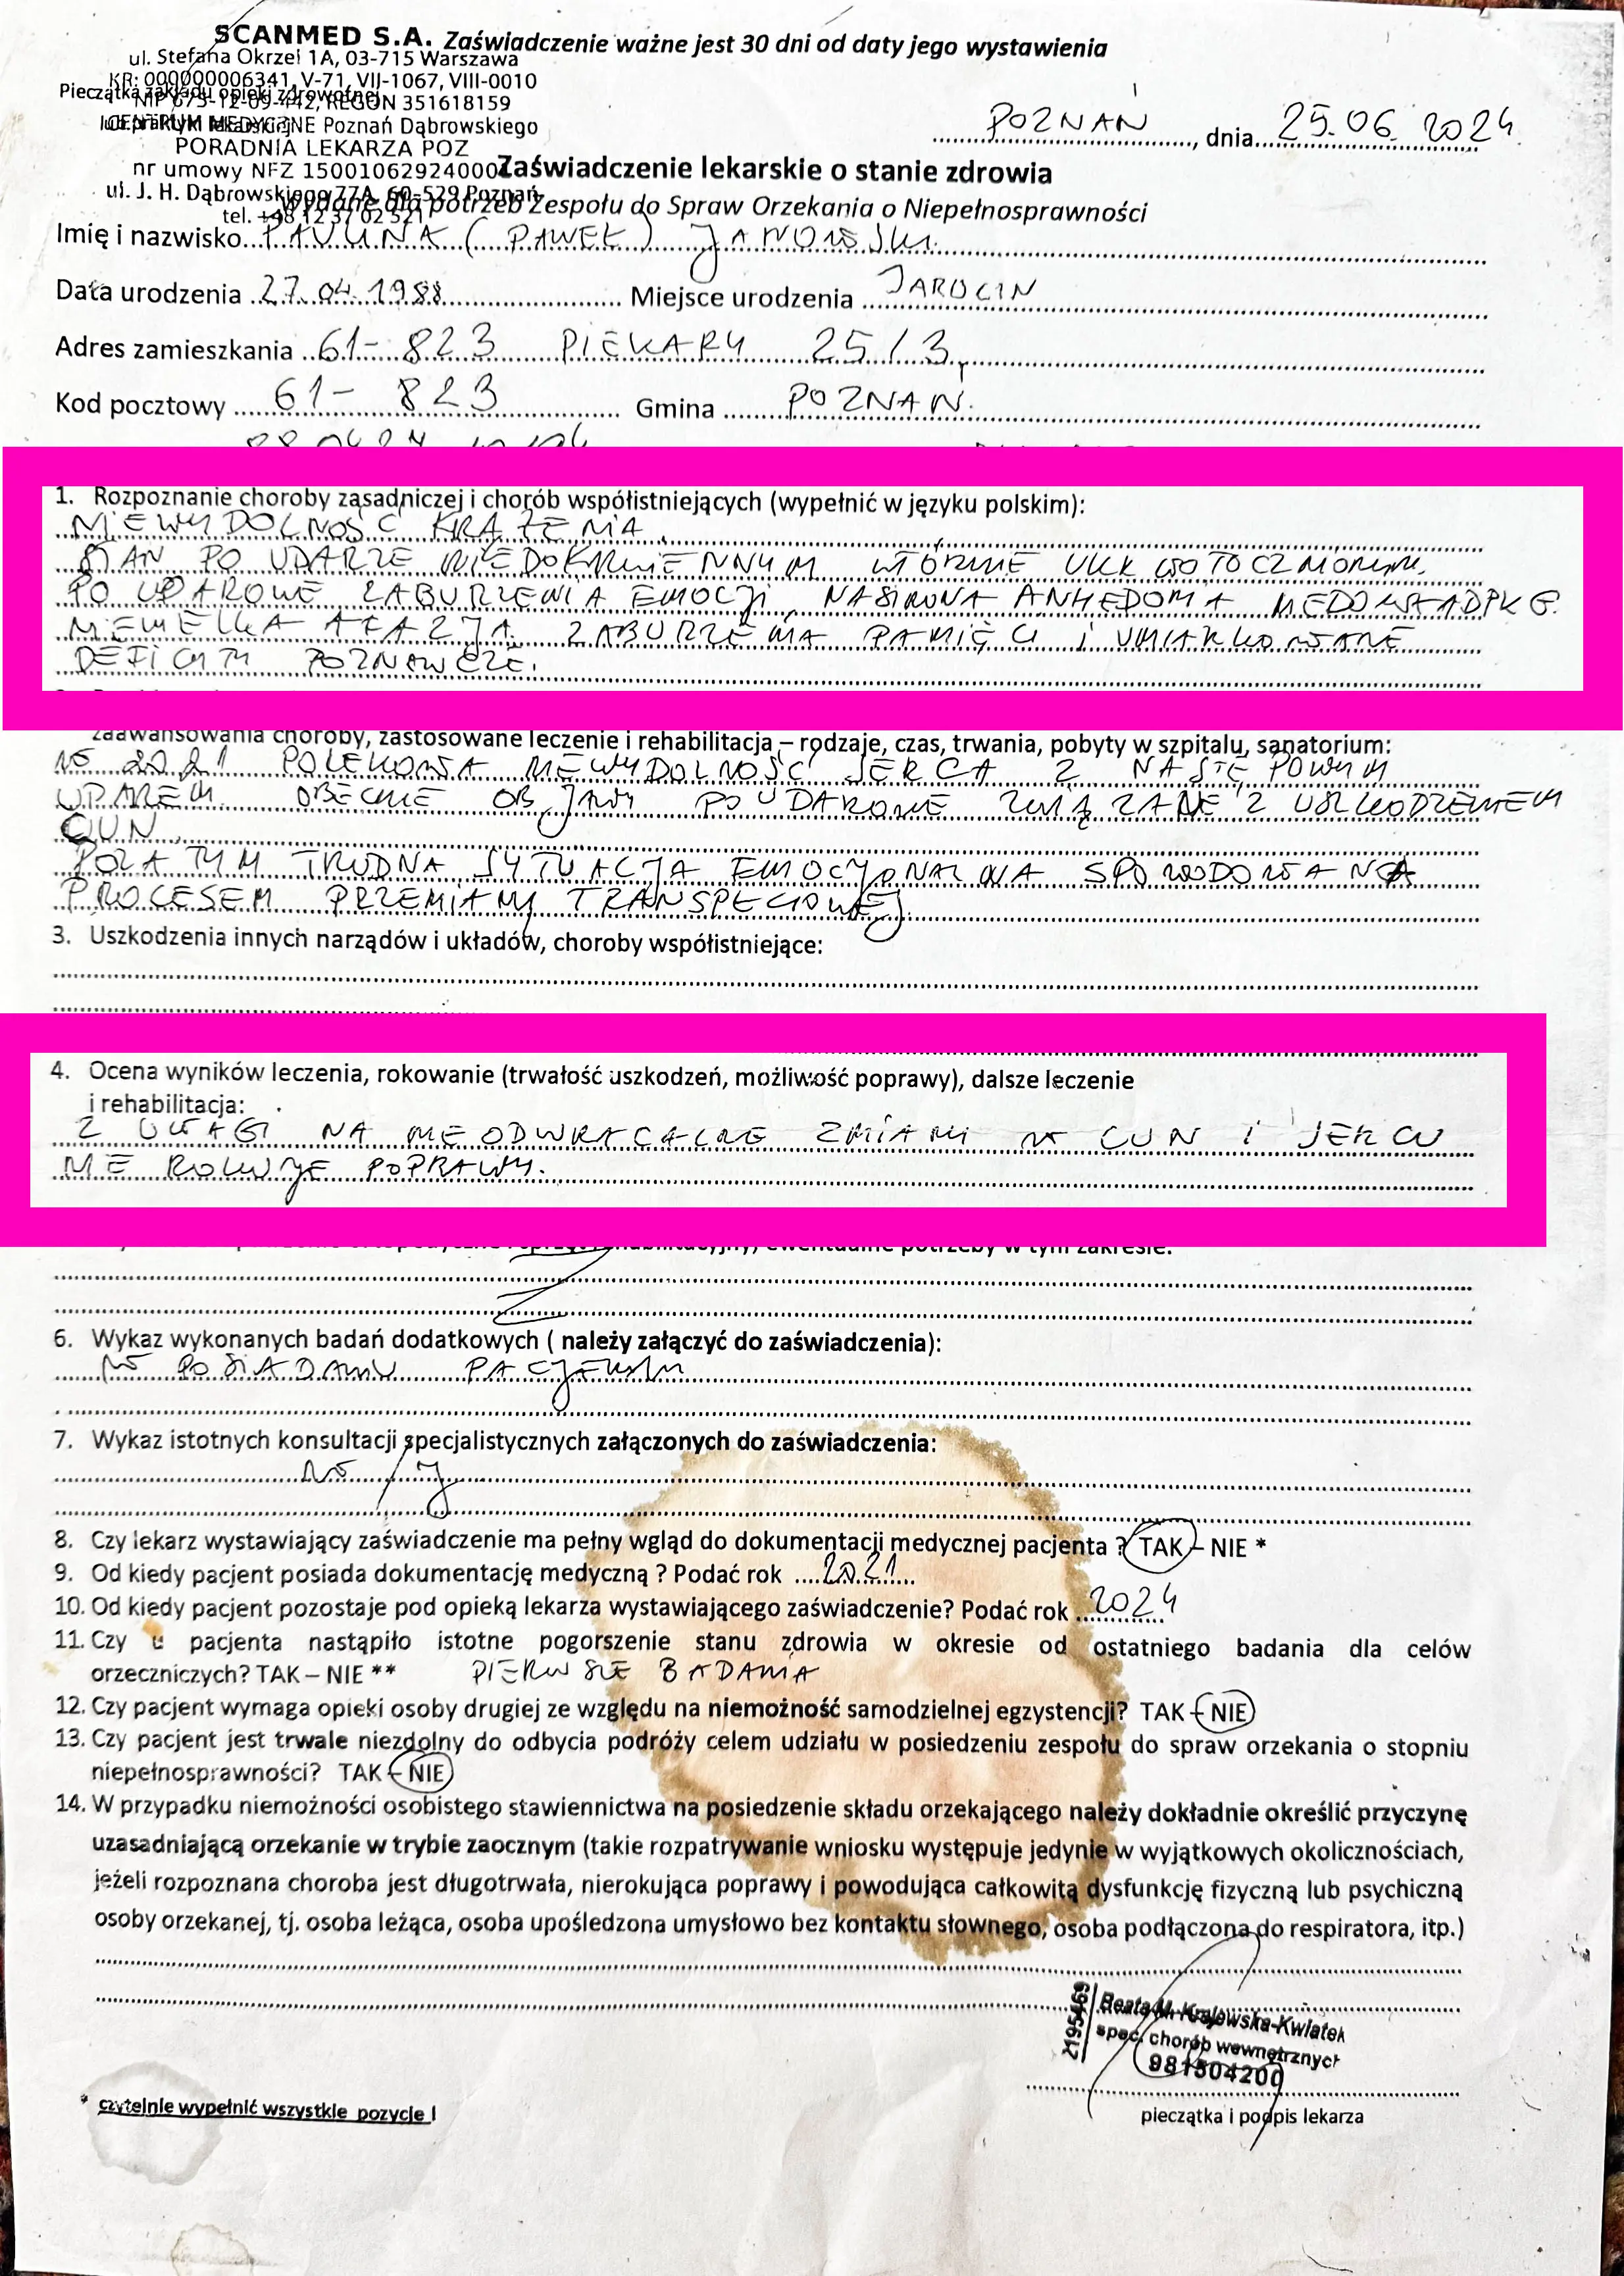 SCANMED S.A. Zaświadczenie ważne jest 30 dni od daty jego wystawienia
ul. Stefana Okrzei 1A, 03-715 Warszawa
KR: 000000006341, V-71, VII-1067, VIII-0010
Pieczątka zakładu opieki zdrowotnej
NIP 675-12-09-442, REGON 351618159
CENTRUM MEDYCZNE Poznań Dąbrowskiego
POZNAŃ, dnia 25.06.2024
PORADNIA LEKARZA POZ
nr umowy NFZ 150010629240004
Zaświadczenie lekarskie o stanie zdrowia
ul. J. H. Dąbrowskiego 77A, 60-529 Poznań
wydane dla potrzeb Zespołu do Spraw Orzekania o Niepełnosprawności
tel. +48 12 37 02 521
Imię i nazwisko PAULINA (PAWEŁ) JAWORSKI
Data urodzenia 27.04.1988 Miejsce urodzenia JAROCIN
Adres zamieszkania 61-823 PIEKARY 25/3
Kod pocztowy 61-823 Gmina POZNAŃ
1. Rozpoznanie choroby zasadniczej i chorób współistniejących (wypełnić w języku polskim):
NIEWYDOLNOŚĆ KRĄŻENIA
STAN PO UDARZE NIEDOKRWIENNYM WTÓRNIE
PO UDAROWE ZABURZENIA EMOCJI, ANHEDONIA
NIEWIELKA AFAZJA. ZABURZENIA PAMIĘCI I UMIARKOWANE
DEFICYTY POZNAWCZE.
zaawansowania choroby, zastosowane leczenie i rehabilitacja – rodzaje, czas, trwania, pobyty w szpitalu, sanatorium:
W 2021 POLEKOWA NIEWYDOLNOŚĆ SERCA Z NASTĘPOWYM
UDAREM. OBECNIE OBJAWY POUDAROWE ZWIĄZANE Z USZKODZENIEM
CUN.
POZA TYM TRUDNA SYTUACJA EMOCJONALNA SPOWODOWANA
PROCESEM PRZEMIANY TRANSPŁCIOWEJ.
3. Uszkodzenia innych narządów i układów, choroby współistniejące:
4. Ocena wyników leczenia, rokowanie (trwałość uszkodzeń, możliwość poprawy), dalsze leczenie
i rehabilitacja:
Z UWAGI NA NIEODWRACALNE ZMIANY W CUN I SERCU
NIE ROKUJE POPRAWY.
6. Wykaz wykonanych badań dodatkowych ( należy załączyć do zaświadczenia):
W POSIADANIU PACJENTA
7. Wykaz istotnych konsultacji specjalistycznych załączonych do zaświadczenia:
8. Czy lekarz wystawiający zaświadczenie ma pełny wgląd do dokumentacji medycznej pacjenta ? TAK – NIE *
9. Od kiedy pacjent posiada dokumentację medyczną ? Podać rok 2021
10. Od kiedy pacjent pozostaje pod opieką lekarza wystawiającego zaświadczenie? Podać rok 2024
11. Czy u pacjenta nastąpiło istotne pogorszenie stanu zdrowia w okresie od ostatniego badania dla celów
orzeczniczych? TAK – NIE ** PIERWSZE BADANIA
12. Czy pacjent wymaga opieki osoby drugiej ze względu na niemożność samodzielnej egzystencji? TAK – NIE
13. Czy pacjent jest trwale niezdolny do odbycia podróży celem udziału w posiedzeniu zespołu do spraw orzekania o stopniu
niepełnosprawności? TAK – NIE
14. W przypadku niemożności osobistego stawiennictwa na posiedzenie składu orzekającego należy dokładnie określić przyczynę
uzasadniającą orzekanie w trybie zaocznym (takie rozpatrywanie wniosku występuje jedynie w wyjątkowych okolicznościach,
jeżeli rozpoznana choroba jest długotrwała, nierokująca poprawy i powodująca całkowitą dysfunkcję fizyczną lub psychiczną
osoby orzekanej, tj. osoba leżąca, osoba upośledzona umysłowo bez kontaktu słownego, osoba podłączona do respiratora, itp.)
2195469
Beata M. Krajewska-Kwiatek
spec. chorób wewnętrznych
981504200
* czytelnie wypełnić wszystkie pozycje !
pieczątka i podpis lekarza